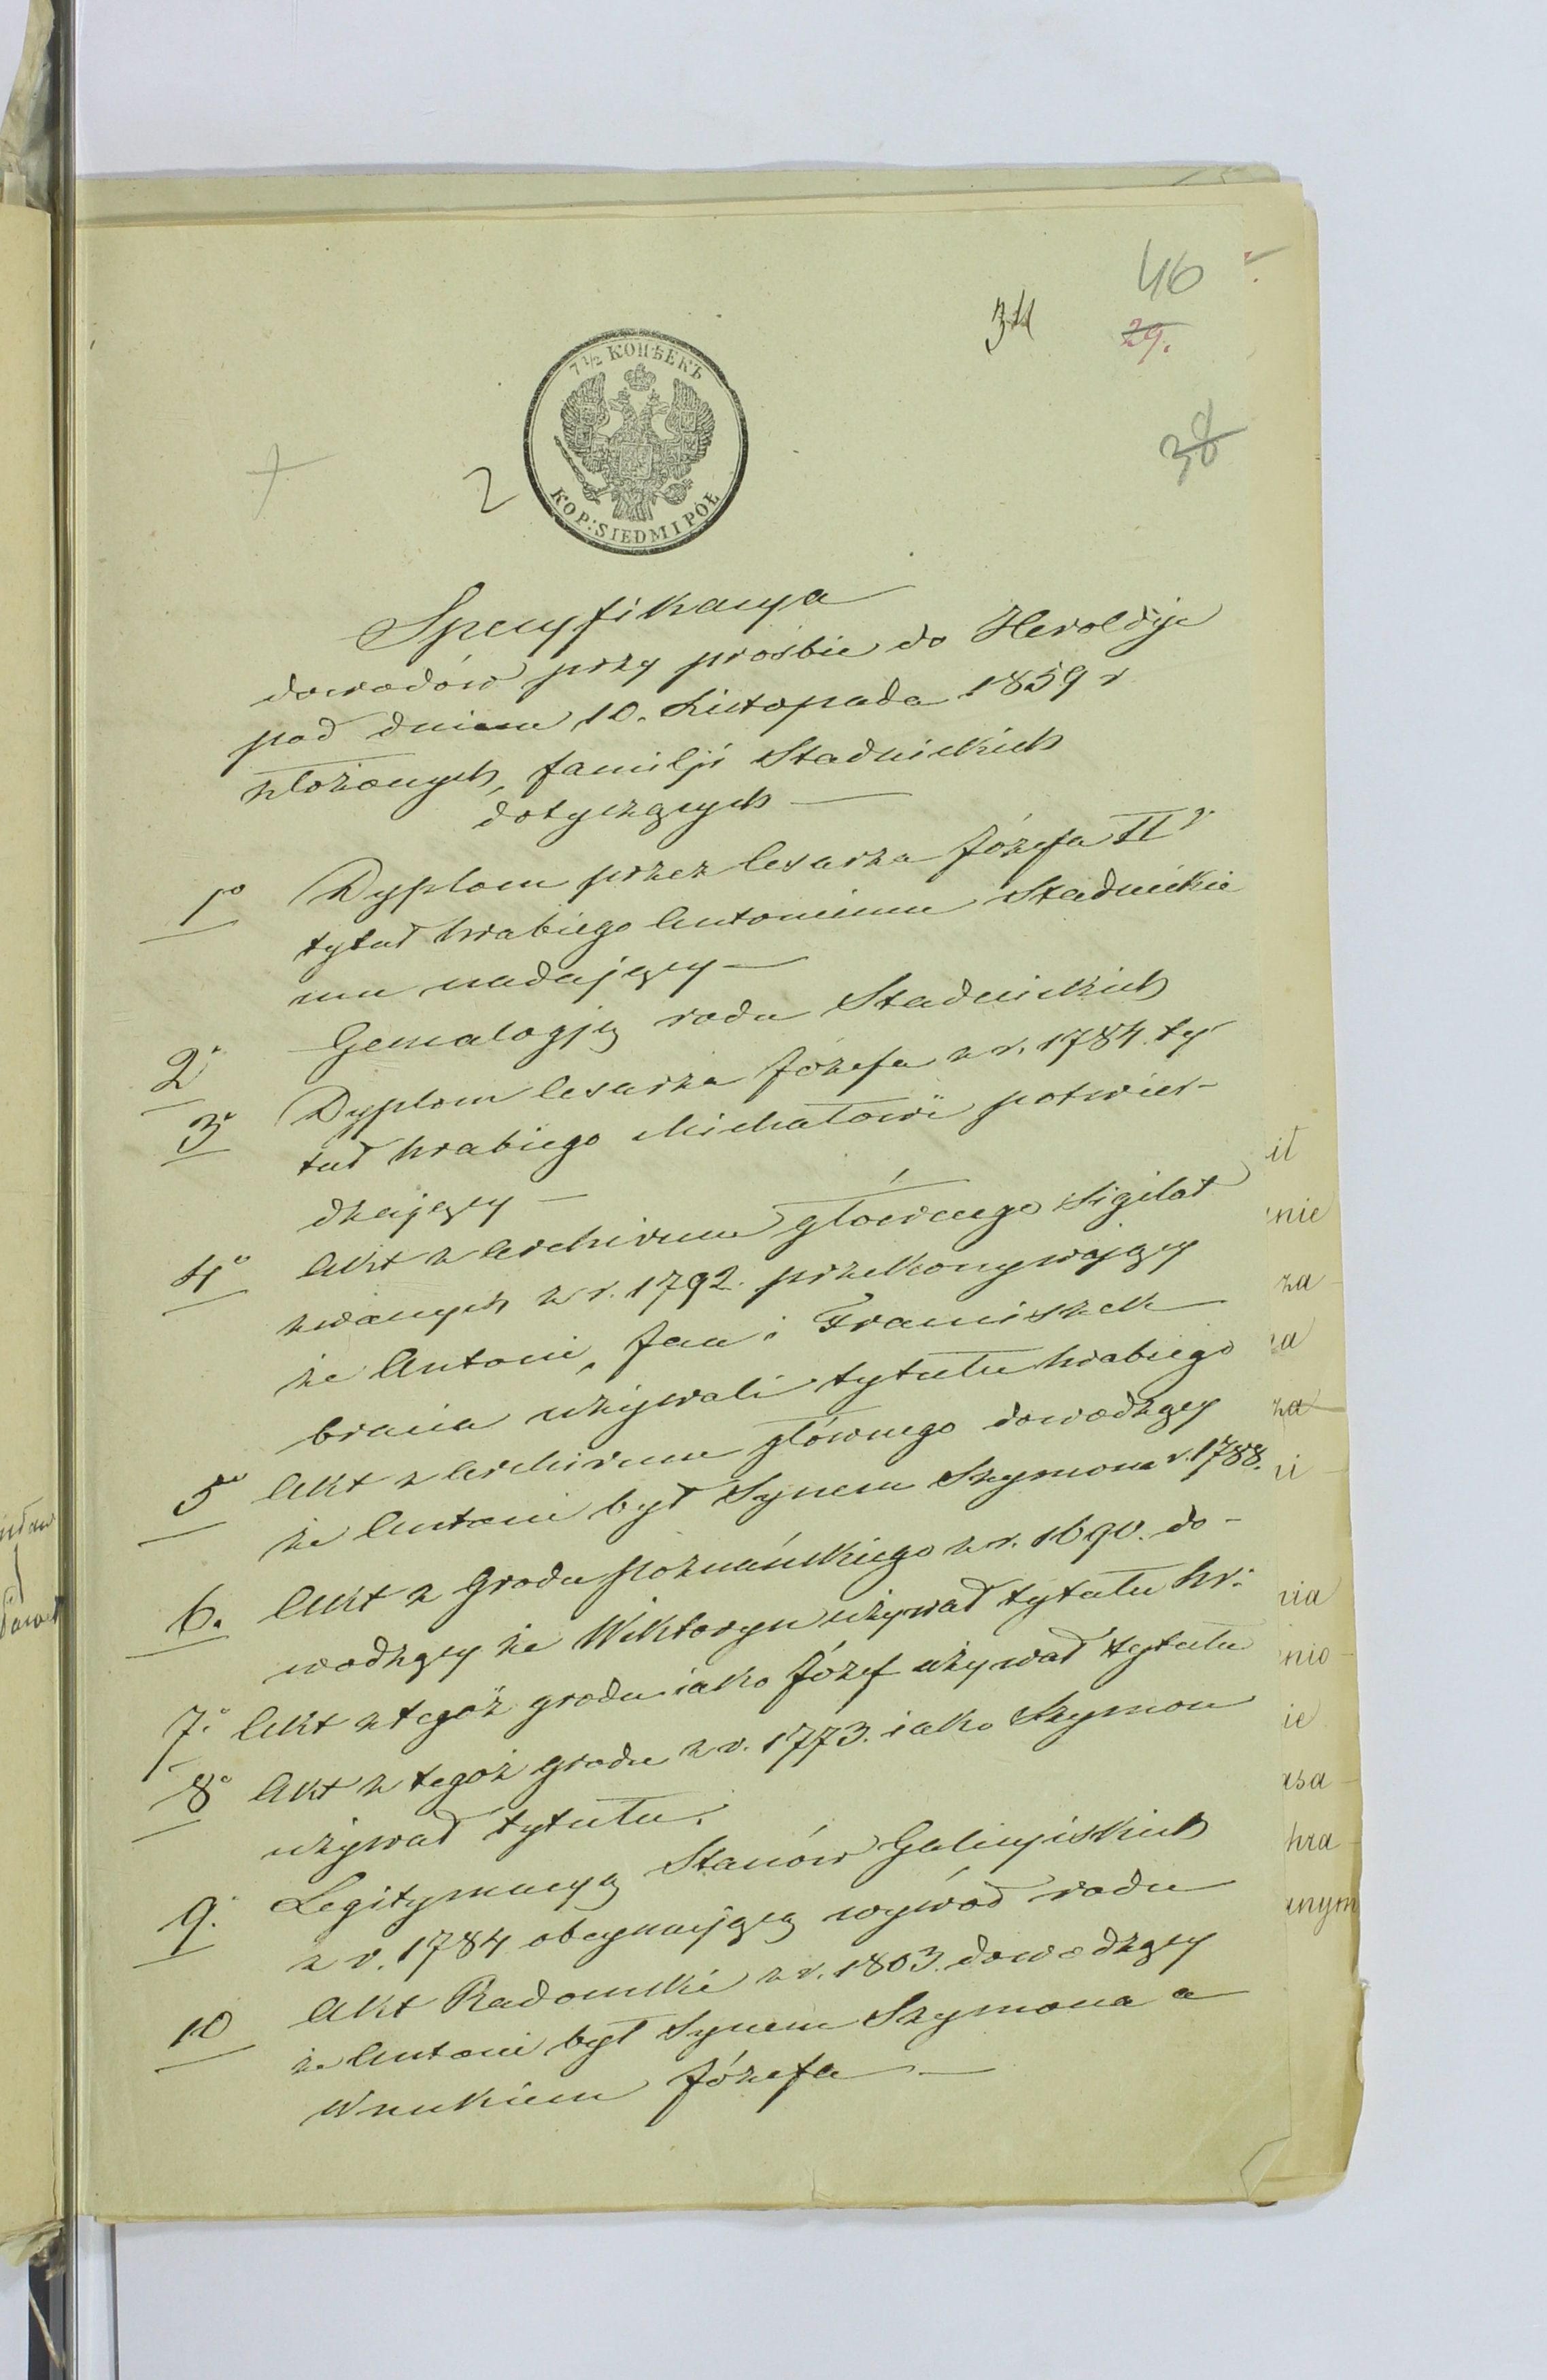 46
34
29.
38
7 1/2 КОПѢЕКЪ
KOP: SIEDM I PÓŁ
2
Specyfikacya
dowodów przy prośbie do Heroldji
pod dniem 10. Listopada 1859 r
złożonych, familji Stadnickich
dotyczących —
1º Dyplom przez Cesarza Józefa II
tytuł hrabiego Antoniemu Stadnickie
mu nadający —
2º Genealogją rodu Stadnickich
3º Dyplom Cesarza Józefa z r. 1784. ty
tuł hrabiego Michałowi potwier-
dzający —
4º Akt z Archivum głównego Sigilat
zwanych z r. 1792. przekonywający
że Antoni, Jan i Franciszek
bracia używali tytułu hrabiego
5º Akt z Archivum głównego dowodzący
że Antoni był Synem Szymona r. 1788.
6. Akt z Grodu Poznańskiego z r. 1690. do-
wodzący że Wiktoryn używał tytułu hr:
7.º Akt z tegoż grodu iako Józef używał tytułu
8º Akt z tegoż grodu z r. 1773. iako Szymon
używał tytułu.
9. Legitymacyą Stanów Galicyiskich
z r. 1784 obeymującą wywód rodu
10 Akt Radomski z r. 1803. dowodzący
że Antoni był Synem Szymona a
Wnukiem Józefa —